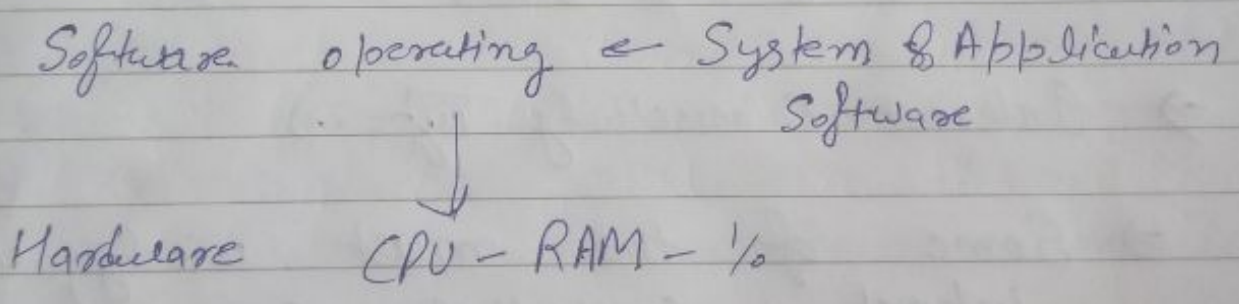 Software operating ← System & Application
Software
↓
Hardware CPU - RAM - I/o